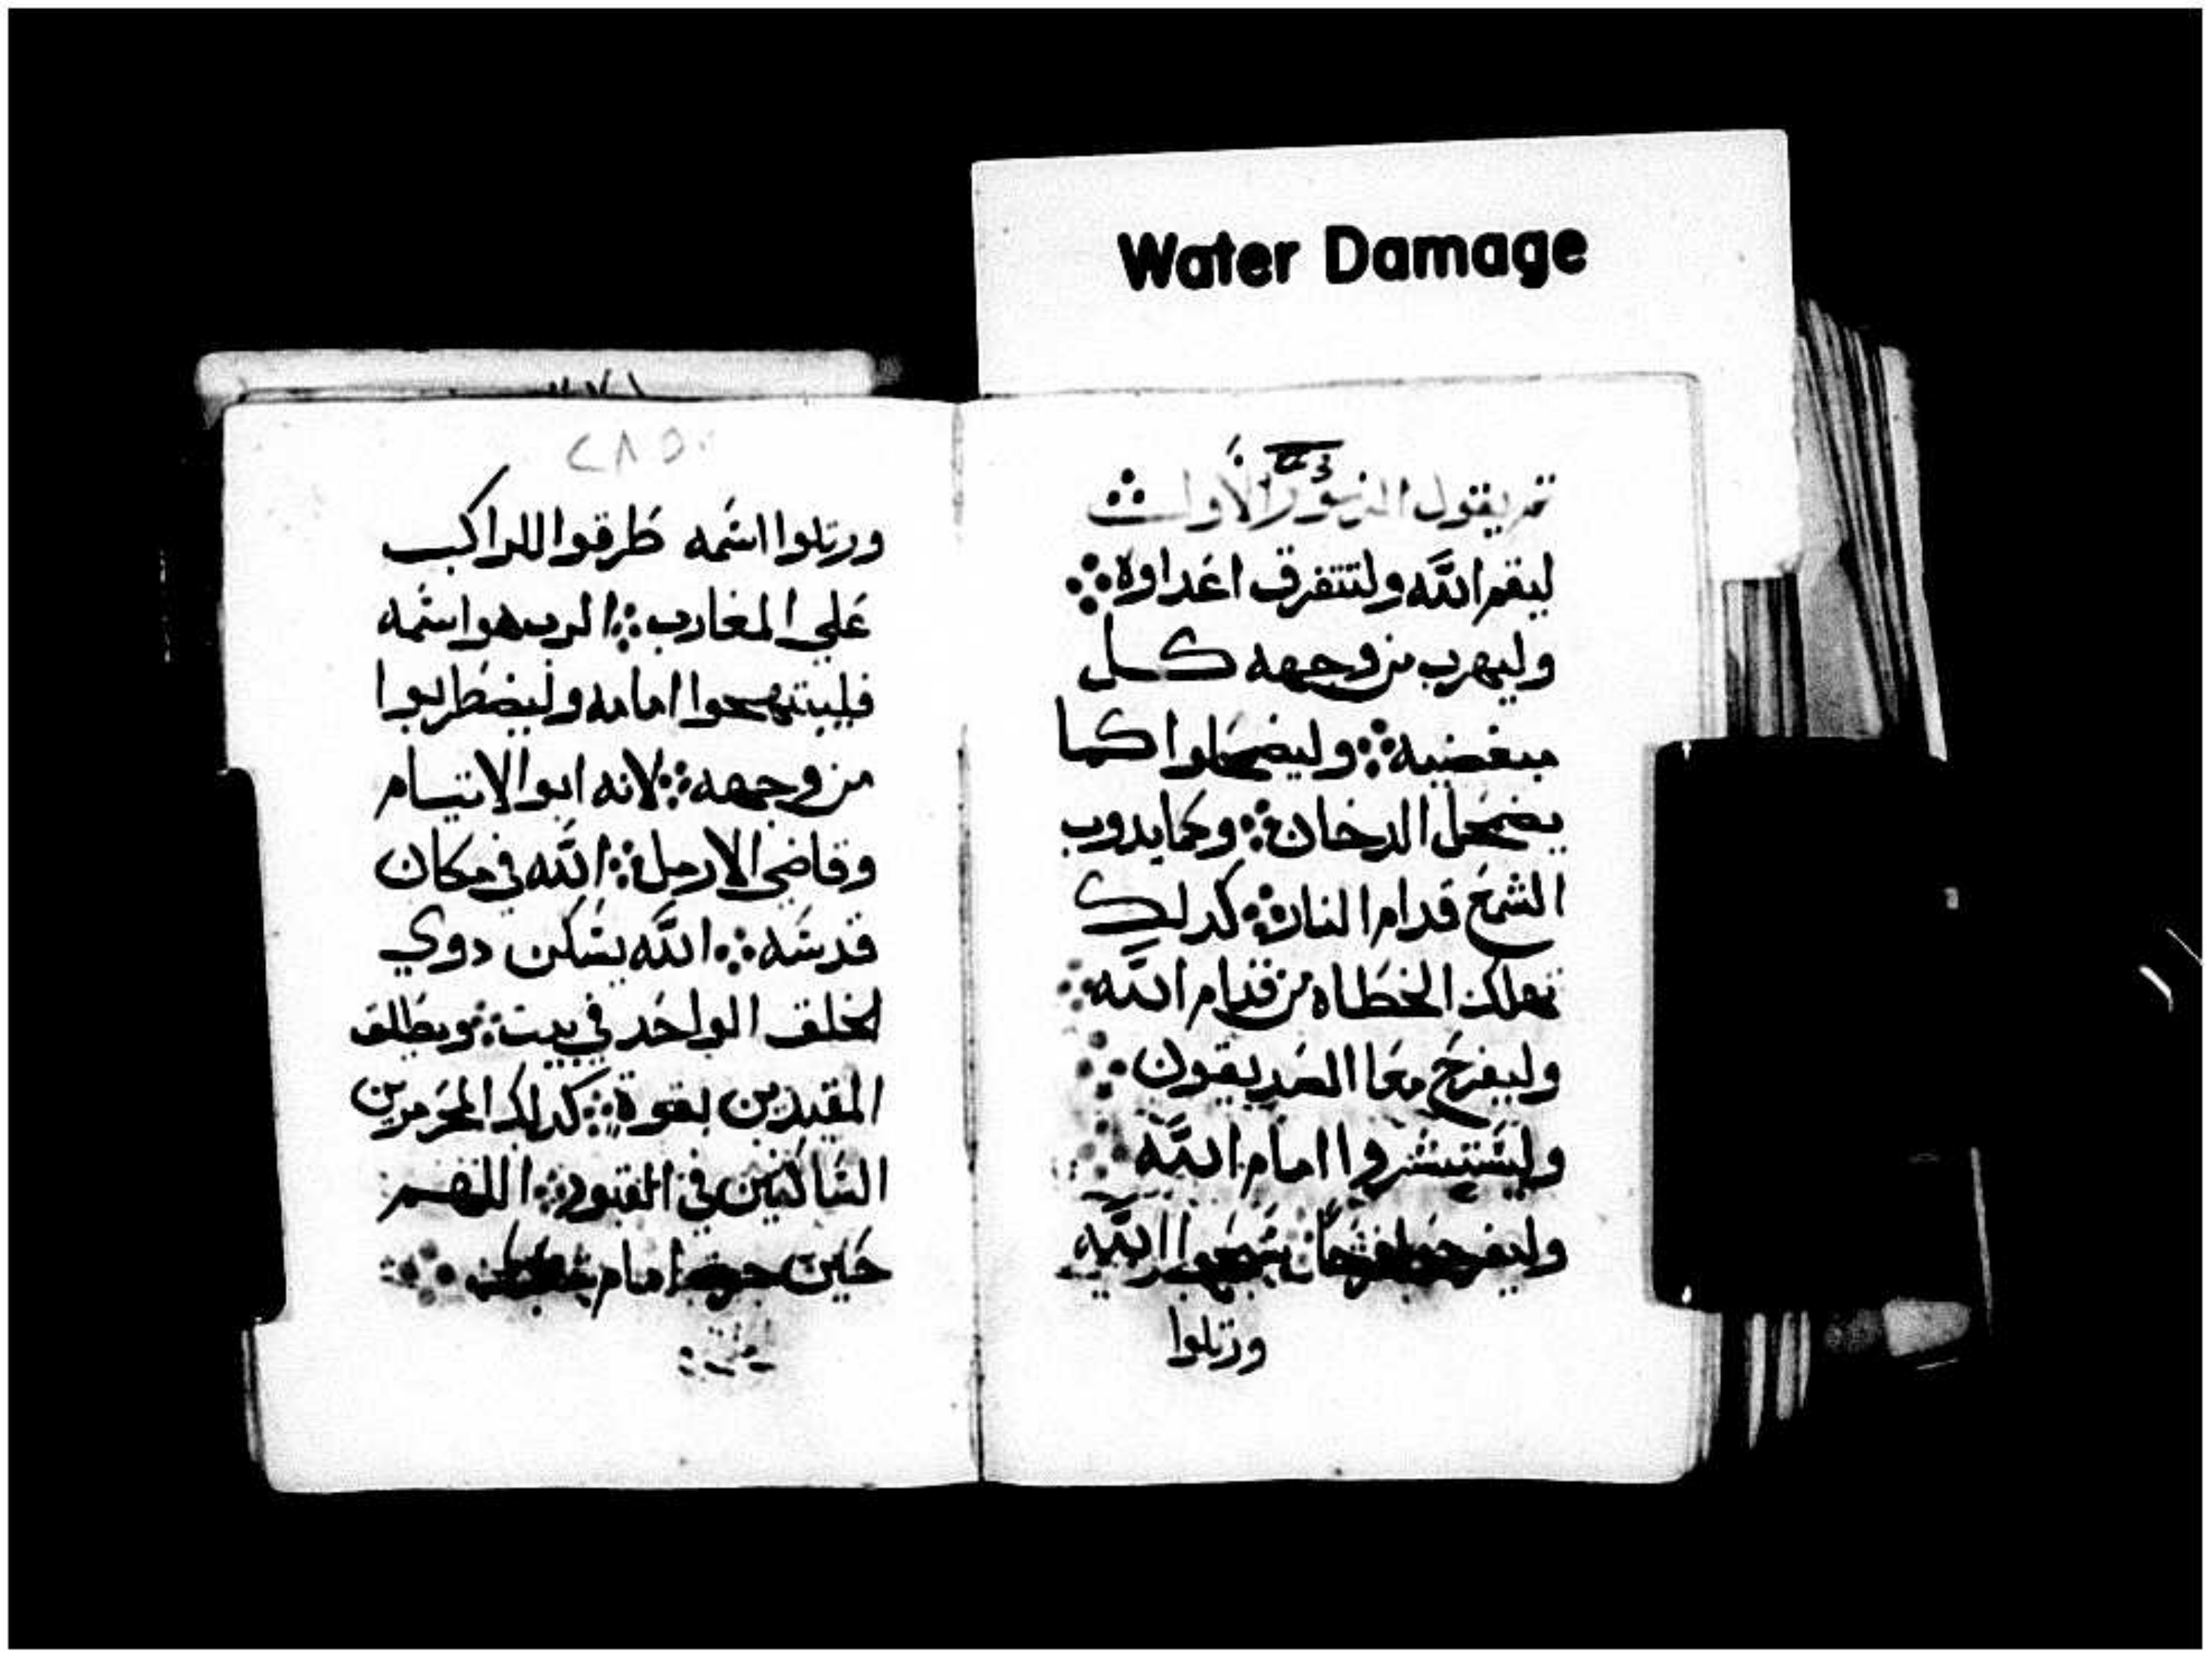 Water Damage
ثم يقول المزمور الاول
ليقم الله ولتتفرق اعداوه
وليهرب من وجهه كل
مبغضيه وليضمحلوا كما
يضمحل الدخان وكما يدوب
الشمع قدام النار كدلك
تهلك الخطاه من قدام الله
وليفرح معا الصديقون
وليستبشروا امام الله
وليفرحوا فرحا سبحوا الله
ورتلوا
ورتلوا اسمه طرقوا للراكب
علي المغارب الرب هو اسمه
فليبتهجوا امامه وليضطربوا
من وجهه لانه ابو الايتام
وقاضي الارمل الله في مكان
قدسه الله يسكن دوي
لخلق الواحد في بيت ويطلق
المقيدين بقوة كدلك المحرمرين
الساكنين في القبور اللهم
حين امام